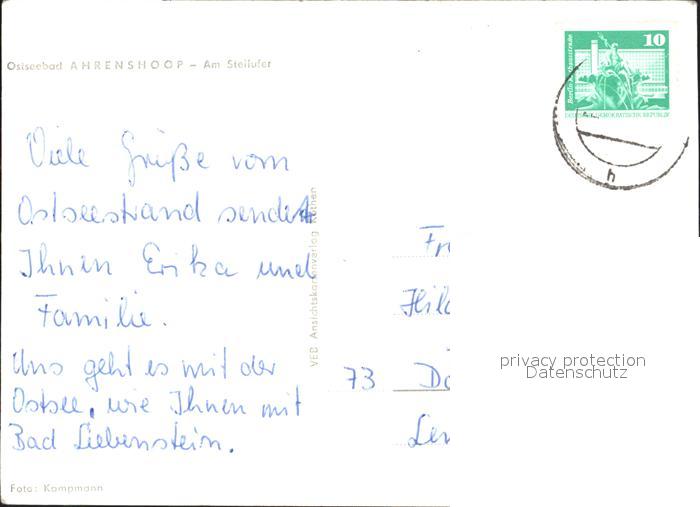 Ostseebad AHRENSHOOP – Am Steilufer
10
Berlin, Rathausstraße
DEUTSCHE DEMOKRATISCHE REPUBLIK
Viele Grüße vom
Ostseestrand sendet
Ihnen Erika und
Familie.
Uns geht es mit der
Ostsee, wie Ihnen mit
Bad Liebenstein.
VEB Ansichtskartenverlag Köthen
Fr
Hil
73 Dö
Len
privacy protection
Datenschutz
Foto: Kampmann
h